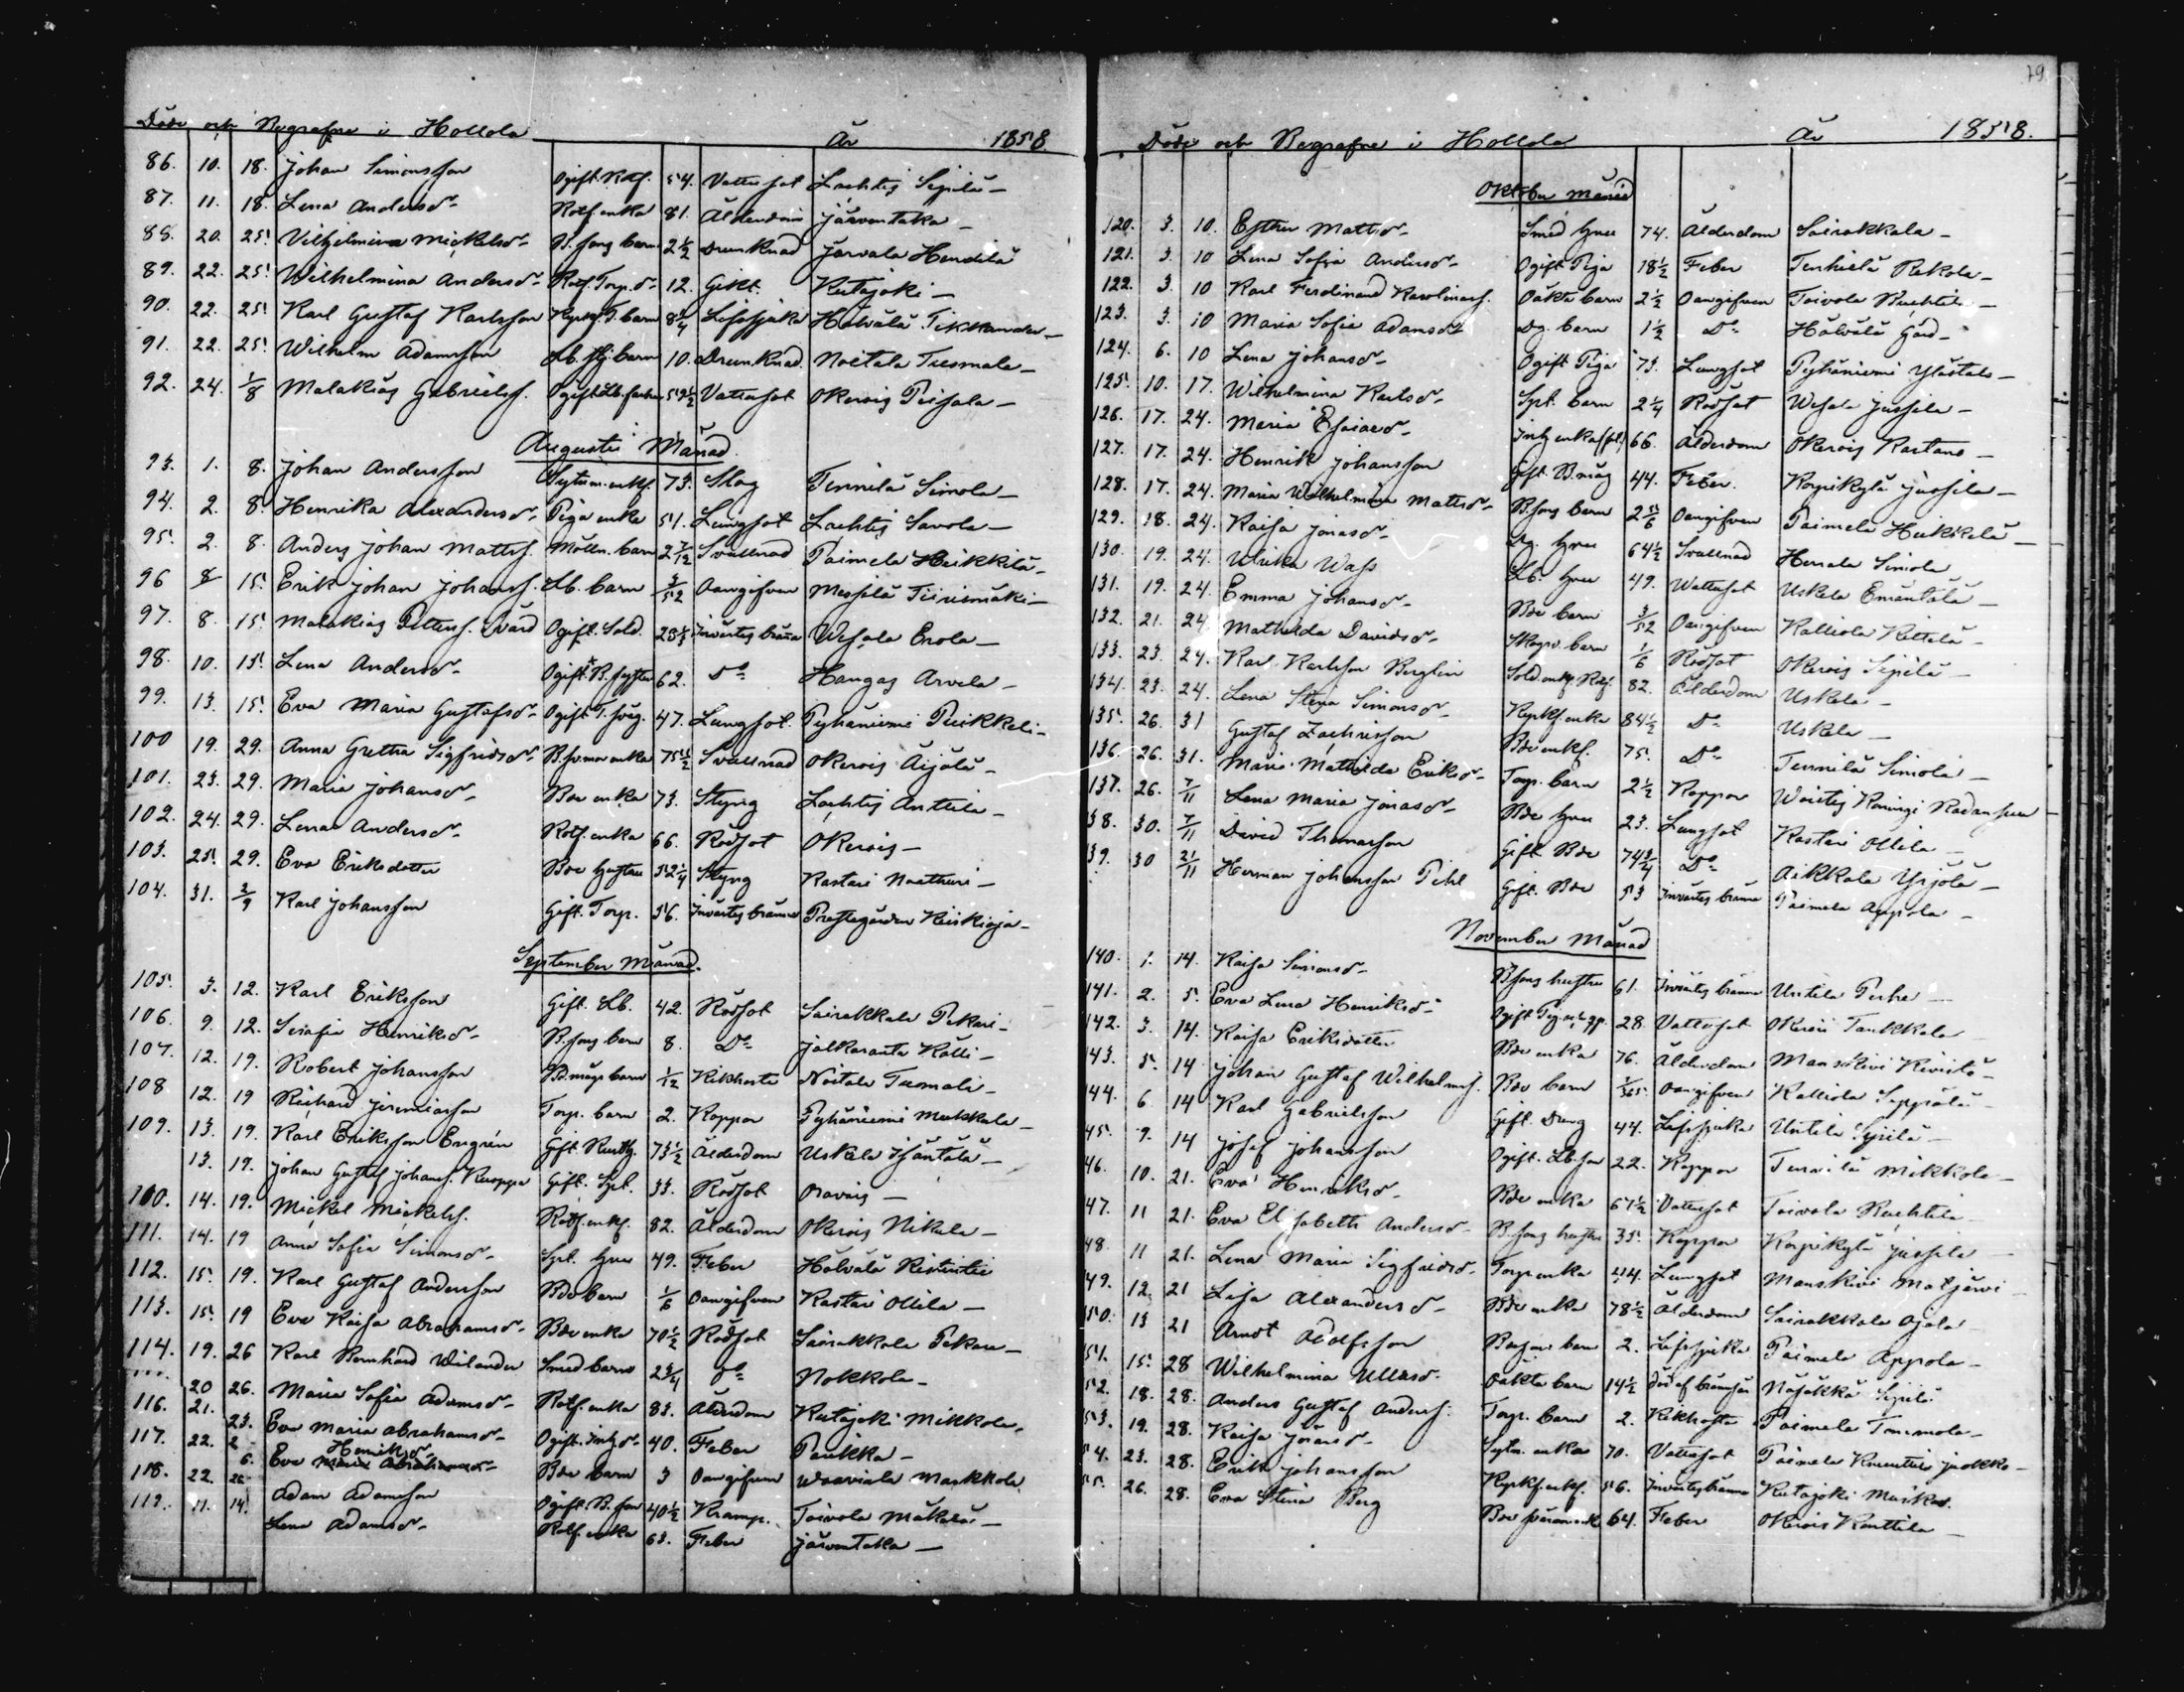 Döde och Begrafne i Hollola År 1858
86. 10. 18. Johan Simonsson Ogift Rotf. 54. Vattusot Lachtis Seppilä
87. 11. 18. Lena Andersd. Rotf. enka 81. Ålderdom Järventaka
88. 20. 25. Vilhjelmina Mickelsd. B. sons barn 2 1/2 Drunknad Järvala Hendilä
89. 22. 25. Wilhelmina Andersd. Rotf. Torp. d. 12. Gikt. Kutajoki
90. 22. 25. Karl Gustaf Karlsson barn 8 1/4 Hälvälä
91. 22. 25. Wilhelm Adamsson Lb. barn 10. Drunknad Noitala Tuomala
92. 24. 1/8 Malakias Gabrielss. Ogift 59 1/2 Vattusot Okerois Peisala
Augusti Månad.
93. 1. 8. Johan Andersson enkl. 73. Slag Tennilä Simola
94. 2. 8. Henrika Alexandersd. Piga enka 51. Lungsot Lachtis Savola
95. 2. 8. Anders Johan Mattss. Mölln. barn 2 7/12 Svullnad Paimela Heikkilä
96 8 15. Erik Johan Johanss. Lb. barn 3/52 Oangifven Messilä Tiirismäki
97. 8. 15. Malakias Petterss. Svärd Ogift. Sold. Invärtes bränna Wesala Erola
98. 10. 15. Lena Andersd. Ogift B. syster 62. Do Hangas Arvela
99. 13. 15. Eva Maria Gustafsd. Ogift 47. Lungsot. Pyhäniemi Pirkkali
100 19. 29. Anna Gretha Sigfridsd. enka Svullnad Okerois Äijälä
101. 23. 29. Maria Johansd. Bde enka 73. Styng Lachtis Anttila
102. 24. 29. Lena Andersd. Rotf. enka 66. Rödsot Okerois
103. 25. 29. Eva Eriksdotter Bde hustru 52 1/4 Styng Kastari Naatturi
104. 31. 2/9 Karl Johansson Gift. Torp. 56. Invärtes bränna Prestegården Kiiskioja
September Månad.
105. 3. 12. Karl Eriksson Gift. Lb. 42. Rödsot Sairakkala Pekari
106. 9. 12. Serafia Henriksd. B. sons barn 8. Do Jalkaranta Källi
107. 12. 19. Robert Johansson B. mågs barn 1/12 Kikhosta Noitala Tuomali
108 12. 19 Richard Jeremiasson Torp. barn 2. Koppor Pyhäniemi Mukkala
109. 13. 19. Karl Eriksson Engrén Gift 73 1/2 Ålderdom Uskela Isäntälä
13. 19. Johan Gustaf Johanss. Kuoppa Gift. Spl. 33. Rödsot Oravais
100. 14. 19. Mickel Mickelss. Rotf. enkl. 82. Ålderdom Okerois Nikula
111. 14. 19 Anna Sofia Simonsd. Spl. hru 49. Feber Hälvälä
112. 15. 19. Karl Gustaf Andersson Bde barn 1/6 Oangifven Kastari Ollila
113. 15. 19 Eva Kaisa Abrahamsd. Bde enka 70 1/2 Rödsot Sairakkala Pekari
114. 19. 26 Karl Bernhard Wilander Smed barn 2 3/4 Do Nokkola
20 26. Maria Sofia Adamsd. Rotf. enka 83. Ålderdom Kutajoki Mikkola
116. 21. 23. Eva Maria Abrahamsd. Ogift. Inh. d. 40. Feber Parikka
117. 22. 2 6. Eva Henriksd. Bde barn 3 Oangifven Waaviala Markkola
118. 22. 26 Adam Adamsson Ogift. B. son 40 1/2 Kramp. Toivola Mäkälä
119. 11. 14. Lena Adamsd. Rotf. enka 63. Feber Järventaka
79.
Döde och Begrafne i Hollola År 1858.
Oktober Månad
120. 3. 10. Esther Mattsd. Smed hru 74. Ålderdom Sairakkala
121. 3. 10 Lena Sofia Andersd. Ogift Piga 18 1/2 Feber Tenhielä Pekola
122. 3. 10 Karl Ferdinand Karolinass. Oäkta barn 2 1/2 Oangifven Toivola Ruchtila
123. 3. 10 Maria Sofia Adamsd. Dg. barn 1 1/2 Do Hälvälä Gård
124. 6. 10 Lena Johansd. Ogift Piga 73. Lungsot Pyhäniemi Ylästalo
125. 10. 17. Wilhelmina Karlsd. Spl. barn 2 1/4 Rödsot Wesala Jussila
126. 17. 24. Maria Esaiaed. Inh. enka 66. Ålderdom Okerois Rastas
127. 17. 24. Henrik Johansson Gift B. måg 44. Feber. Korpikylä Jussila
128. 17. 24. Maria Wilhelmina Mattsd. B. sons barn 2 5/6 Oangifven Paimela Heikkilä
129. 18. 24. Kaisa Jonasd. Dg. hru 64 1/2 Svullnad Herrala Simola
130. 19. 24. Ulrika Wass Lb. hru 49. Wattusot Uskela Emäntälä
131. 19. 24. Emma Johansd. Bde barn 3/52 Oangifven Kalliola Kettelä
132. 21. 24 Mathilda Davidsd. barn 1/6 Rödsot Okerois Seppilä
133. 23. 24. Karl Karlsson Berglin Sold. enkl. 82. Ålderdom Uskela
134. 23. 24. Lena Stina Simonsd. enka 84 1/2 Do Uskela
135. 26. 31 Gustaf Zachrisson Bde enkl. 75. Do Tennilä Simola
136. 26. 31. Maria Mathilda Eriksd. Torp. barn 2 1/2 Koppor
137. 26. 7/11 Lena Maria Jonasd. Bde hru 23. Lungsot Kastari Ollila
38. 30. 7/11 David Thomasson Gift Bde 74 3/4 Do Aikkala Yrjölä
39. 30 21/11 Herman Johansson Pihl Gift. Bde 53 Invärtes bränna Paimela Appola
November Månad
140. 1. 14. Kaisa Simonsd. B. sons hustru 61. Invärtes bränna Untila Perhe
141. 2. 5. Eva Lena Henriksd. Ogift 28. Vattusot Okerois Tankkala
142. 3. 14. Kaisa Eriksdotter Bde enka 76. Ålderdom Manskivi Kivistö
143. 5. 14 Johan Gustaf Wilhelmss. Bde barn Oangifven Kalliola Seppälä
144. 6 14 Karl Gabrielsson Gift. Dreng 44. Untila Seppilä
45. 9. 14 Josef Johansson Ogift. Lb. son 22. Koppor Tennilä Mikkola
46. 10. 21. Eva Henriksd. Bde enka 67 1/2 Vattusot Toivola Ruchtila
47. 11 21. Eva Elisabeth Andersd. B. sons hustru 35. Koppor Korpikylä Jussila
48. 11 21. Lena Maria Sigfridsd. Torp. enka 44. Lungsot Manskivi Matjärvi
49. 12. 21 Lisa Alexandersd. Bde enka 78 1/2 Ålderdom Sairakkala Ojala
50. 13 21 Arvot Adolfsson barn 2. Paimela Appola
51. 15. 28 Wilhelmina Ullasd. Oäkta barn 14 1/2 Död af brännsår Näsäkkä Seppilä
52. 18. 28. Anders Gustaf Anderss. Torp. barn 2. Kikhosta Paimela Tommola
53. 19. 28. Kaisa Jöransd. Sytn. enka 70. Vattusot Paimela
54. 23. 28. Erik Johansson enkl. 56. Invärtes bränna Kutajoki
55. 26. 28. Eva Stina Berg Bde 64. Feber Okerois Kanttila